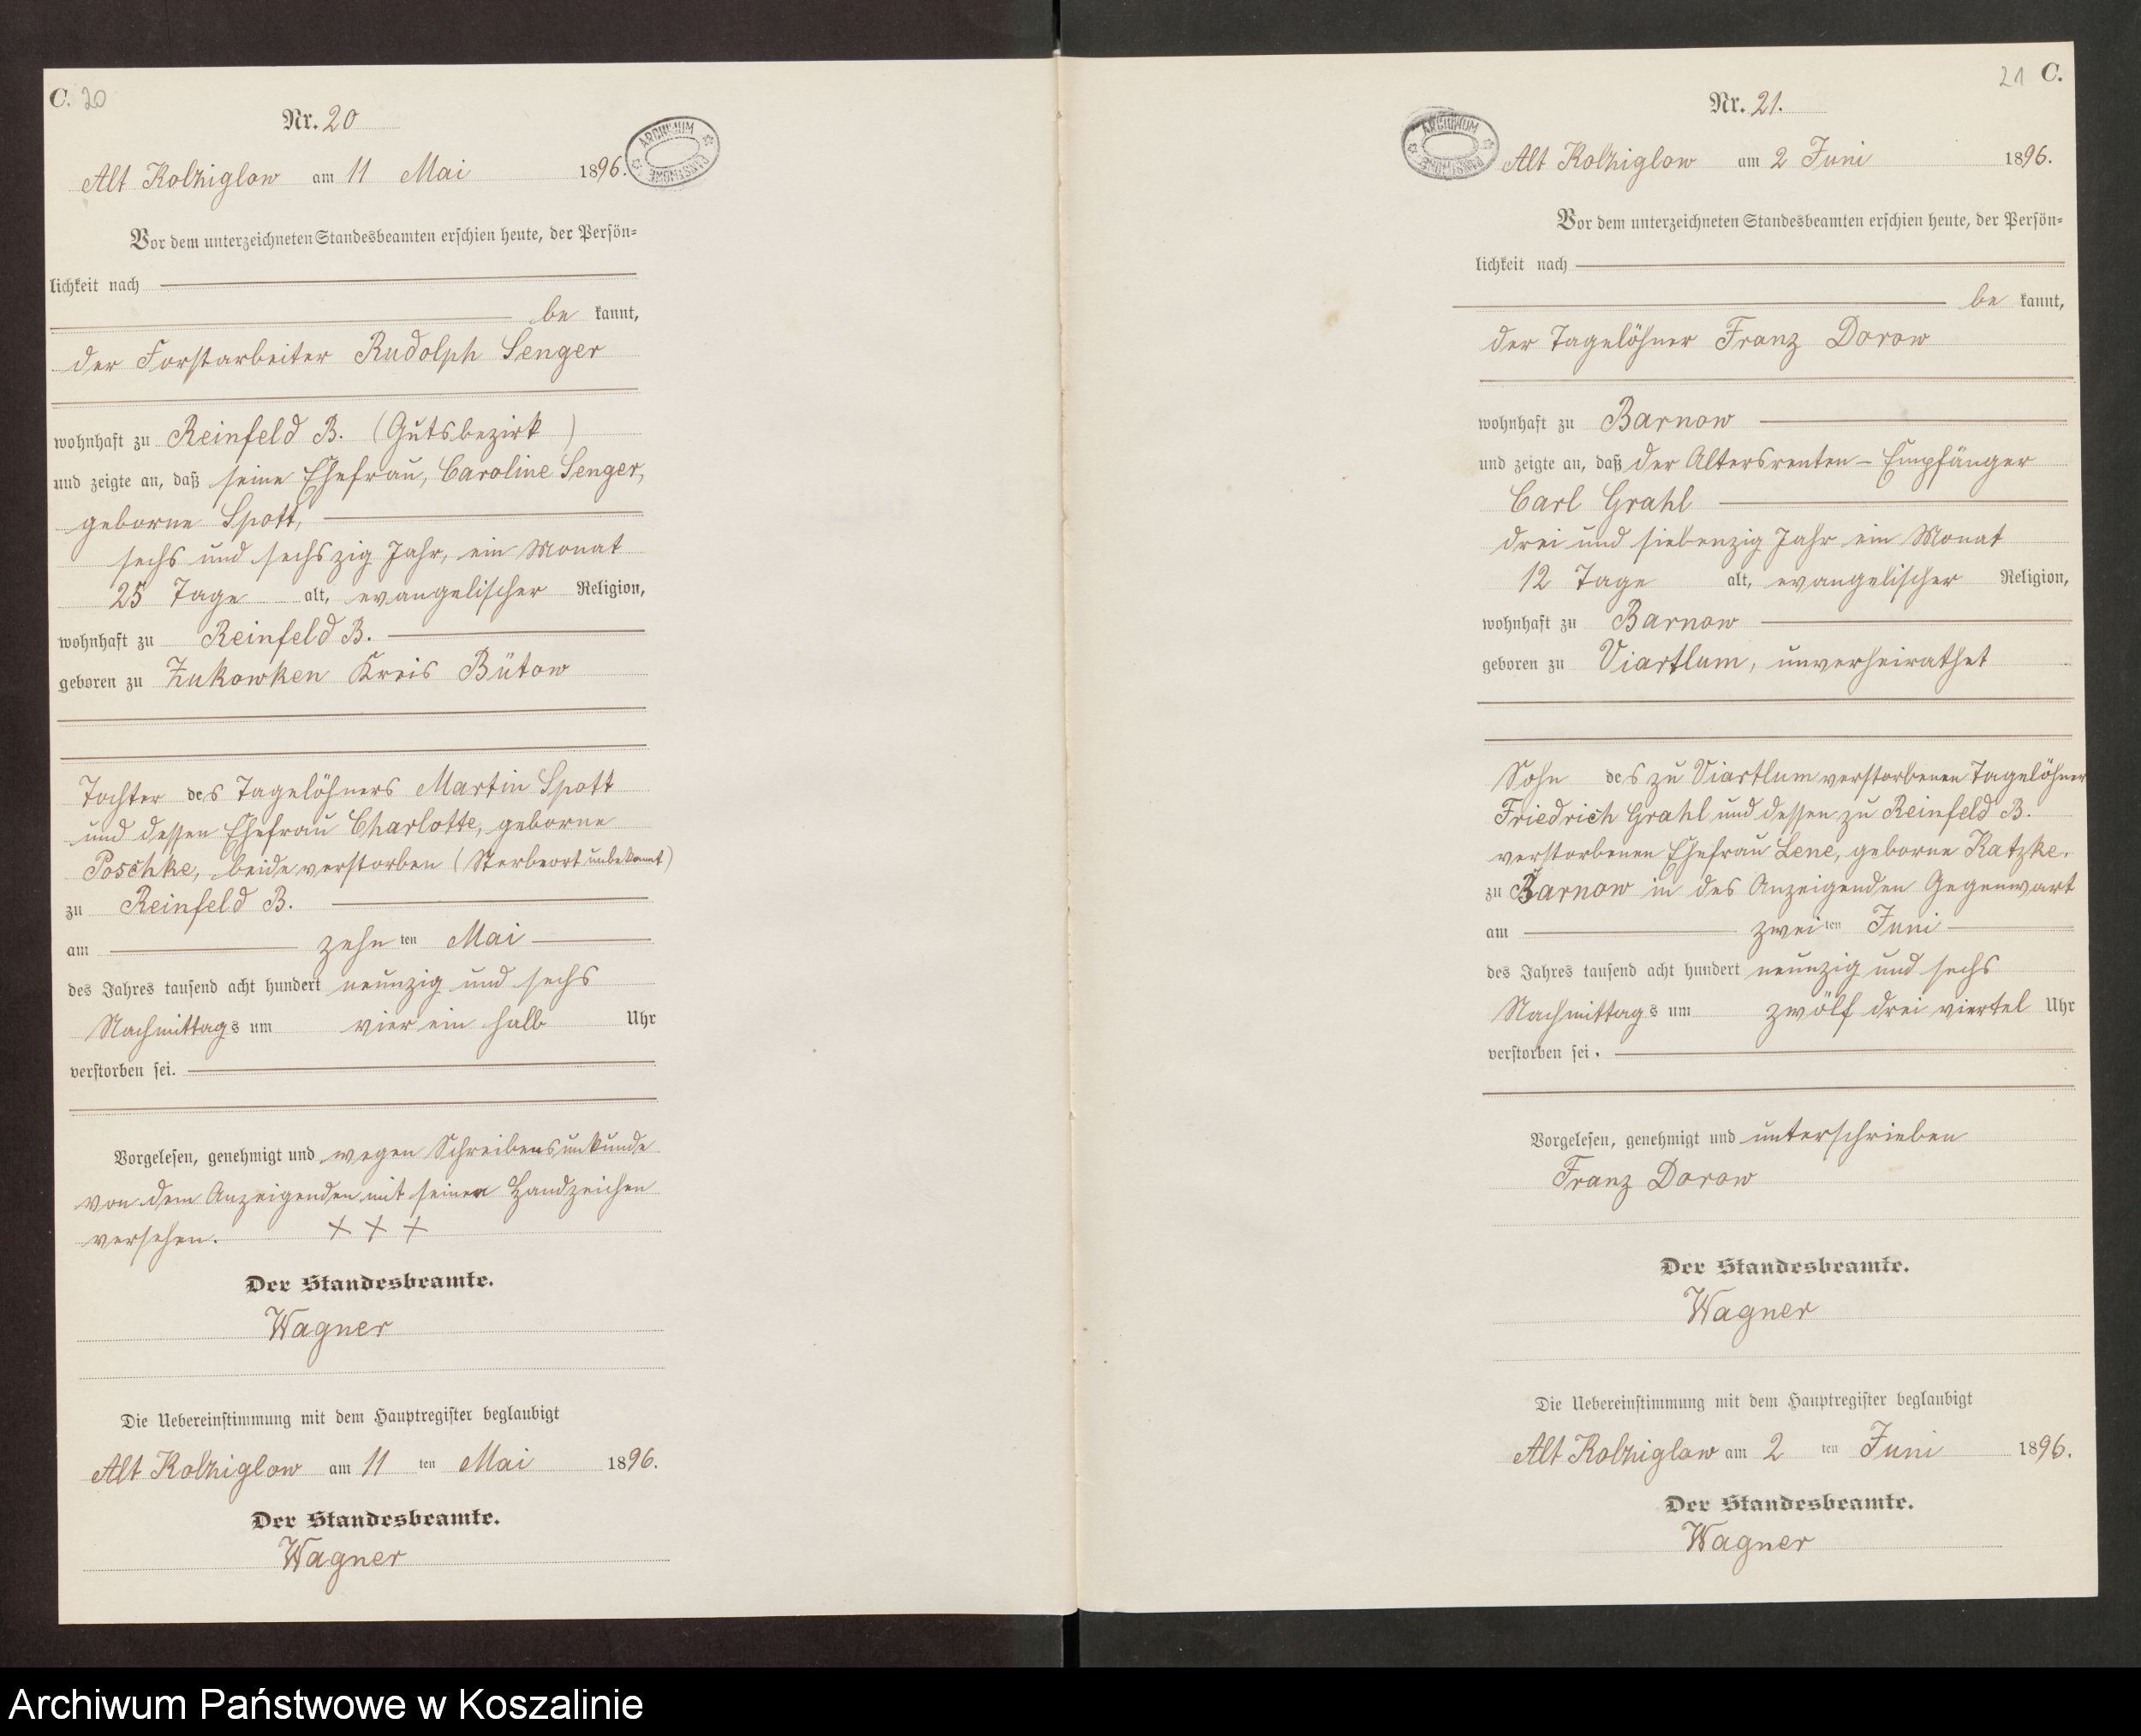 C. 20
Nr. 20
ARCHIWUM PAŃSTWOWE
Alt Kolziglow am 11 Mai 1896.
Vor dem unterzeichneten Standesbeamten erschien heute, der Persön-
lichkeit nach
be kannt,
der Forstarbeiter Rudolph Senger
wohnhaft zu Reinfeld B. (Gutsbezirk)
und zeigte an, daß seine Ehefrau, Caroline Senger,
geborne Spott,
sechs und sechszig Jahr, ein Monat
25 Tage alt, evangelischer Religion,
wohnhaft zu Reinfeld B.
geboren zu Zukowken Kreis Bütow
Tochter des Tagelöhners Martin Spott
und dessen Ehefrau Charlotte, geborne
Poschke, beide verstorben (Sterbeort unbekannt)
zu Reinfeld B.
am zehn ten Mai
des Jahres tausend acht hundert neunzig und sechs
Nachmittags um vier ein halb Uhr
verstorben sei.
Vorgelesen, genehmigt und wegen Schreibensunkunde
von dem Anzeigenden mit seinen Handzeichen
versehen. + + +
Der Standesbeamte.
Wagner
Die Uebereinstimmung mit dem Hauptregister beglaubigt
Alt Kolziglow am 11 ten Mai 1896.
Der Standesbeamte.
Wagner
21 C.
Nr. 21.
ARCHIWUM PAŃSTWOWE
Alt Kolziglow am 2 Juni 1896.
Vor dem unterzeichneten Standesbeamten erschien heute, der Persön-
lichkeit nach
be kannt,
der Tagelöhner Franz Dorow
wohnhaft zu Barnow
und zeigte an, daß der Altersrenten-Empfänger
Carl Grahl
drei und siebenzig Jahr ein Monat
12 Tage alt, evangelischer Religion,
wohnhaft zu Barnow
geboren zu Viartlum, unverheirathet
Sohn des zu Viartlum verstorbenen Tagelöhner
Friedrich Grahl und dessen zu Reinfeld B.
verstorbenen Ehefrau Lene, geborne Katzke.
zu Barnow in des Anzeigenden Gegenwart
am zwei ten Juni
des Jahres tausend acht hundert neunzig und sechs
Nachmittags um zwölf drei viertel Uhr
verstorben sei.
Vorgelesen, genehmigt und unterschrieben
Franz Dorow
Der Standesbeamte.
Wagner
Die Uebereinstimmung mit dem Hauptregister beglaubigt
Alt Kolziglow am 2 ten Juni 1896.
Der Standesbeamte.
Wagner
Archiwum Państwowe w Koszalinie